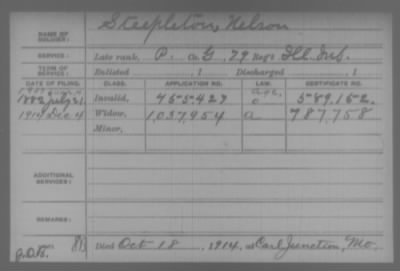 NAME OF SOLDIER: Steepleton, Nelson
SERVICE: Late rank, P. Co. G, 79 Reg't Ill. Inf.
TERM OF SERVICE: Enlisted , 1 Discharged , 1
DATE OF FILING. CLASS. APPLICATION NO. LAW. CERTIFICATE NO.
1882 July 21 Invalid, 455.427 age, 589.152.
1914 Dec 4 Widow, 1.037.954 a 787,758
Minor,
ADDITIONAL SERVICES:
REMARKS:
Died Oct 18, 1914, at Carl Junction, Mo.